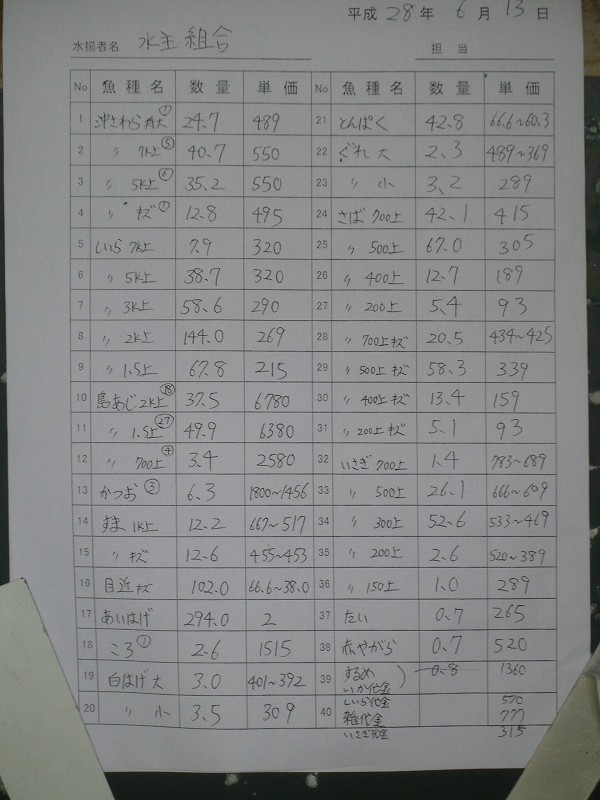 平成 28年 6月 13日
水揚者名 水主組合 担当
No 魚種名 数量 単価
1 沖さわら 特大① 24.7 489
2 〃 7K上⑤ 40.7 550
3 〃 5K上⑥ 35.2 550
4 〃 キズ① 12.8 495
5 しいら 7K上 7.9 320
6 〃 5K上 38.7 320
7 〃 3K上 58.6 290
8 〃 2K上 144.0 269
9 〃 1.5上 67.8 215
10 島あじ 2K上⑱ 37.5 6780
11 〃 1.5上㉗ 49.9 6380
12 〃 700上④ 3.4 2580
13 かつお③ 6.3 1800~1456
14 すま 1K上 12.2 667~517
15 〃 キズ 12.6 455~453
16 目近 キズ 102.0 66.6~38.0
17 あいはげ 294.0 2
18 ころ① 2.6 1515
19 白はげ 大 3.0 401~392
20 〃 小 3.5 309
No 魚種名 数量 単価
21 とんぱく 42.8 66.6~60.3
22 ぐれ 大 2.3 489~369
23 〃 小 3.2 289
24 さば 700上 42.1 415
25 〃 500上 67.0 305
26 〃 400上 12.7 189
27 〃 200上 5.4 93
28 〃 700上キズ 20.5 434~425
29 〃 500上キズ 58.3 339
30 〃 400上キズ 13.4 159
31 〃 200上キズ 5.1 93
32 いさぎ 700上 1.4 783~689
33 〃 500上 26.1 666~609
34 〃 300上 52.6 533~469
35 〃 200上 2.6 520~389
36 〃 150上 1.0 289
37 たい 0.7 265
38 赤やがら 0.7 520
39 するめいか代金 0.8 1360
40 しいら代金 570
雑代金 777
いさぎ代金 315